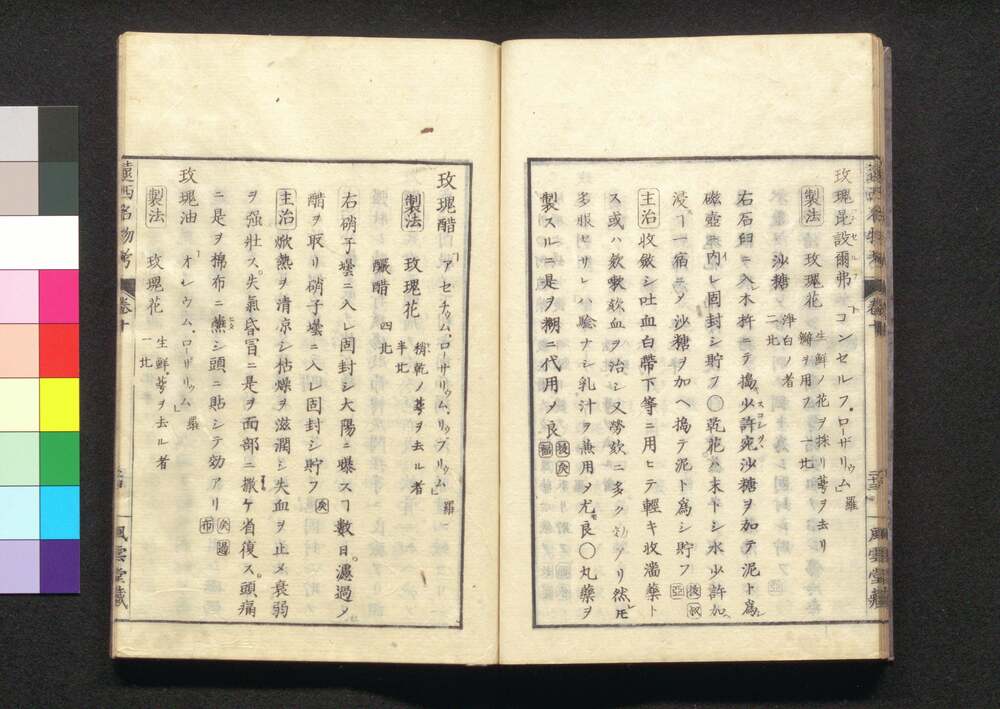 玫瑰昆設爾弗「コンセルフ、ローザリゥム」羅
製法 玫瑰花 生鮮ノ花ヲ採リ萼ヲ去リ鱗ヲ用フ 一比
沙糖 浄白ノ者 二比
右石臼ニ入木杵ニテ搗少許宛沙糖ヲ加テ泥ト為シ
磁壺内レ固封シ貯フ〇乾花ハ末トシ水少許加ヘ
浸ヿ一宿ニメ沙糖ヲ加ヘ搗テ泥ト為シ貯フ
主治 收斂シ吐血白帯下等ニ用ヒテ輕キ收濇藥ト
ス或ハ欬嗽欬血ヲ治シ又勞欬ニ多ク
多服セサレハ驗ナシ乳汁ヲ兼用メ尤良〇丸藥ヲ
製スルニ是ヲ糊ニ代用メ良
遠西名物考 卷十 風雲堂藏
玫瑰醋「アセチゥム、ローサリゥム、リゥブリゥム」羅
製法 玫瑰花 稍乾ノ萼ヲ去ル者 半比
釅醋 四比
右硝子壜ニ入レ固封シ大陽ニ曝スヿ數日。濾過メ
醋ヲ取リ硝子壜ニ入レ固封シ貯フ
主治 焮熱ヲ清凉シ枯燥ヲ滋潤シ失血ヲ止メ衰弱
ヲ强壯ス。失氣昏冒ニ是ヲ面部ニ撒ケ省復ス。頭痛
ニ是ヲ棉布ニ蘸シ頭ニ貼シテ効アリ
玫瑰油「オレウム、ローザリゥム」羅
製法 玫瑰花 生鮮萼ヲ去ル者 一比
遠西名物考 卷十 風雲堂藏